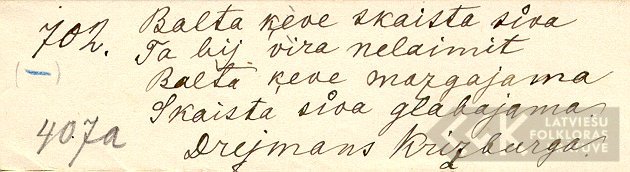 702. Balta ķēve skaista siva
Ta bij vira nelaimit
(—) Balta ķeve mazgajama
Skaista siva glabajama.
407a Drejmans Krizburga.
LATVIEŠU
FOLKLORAS
KRĀTUVE